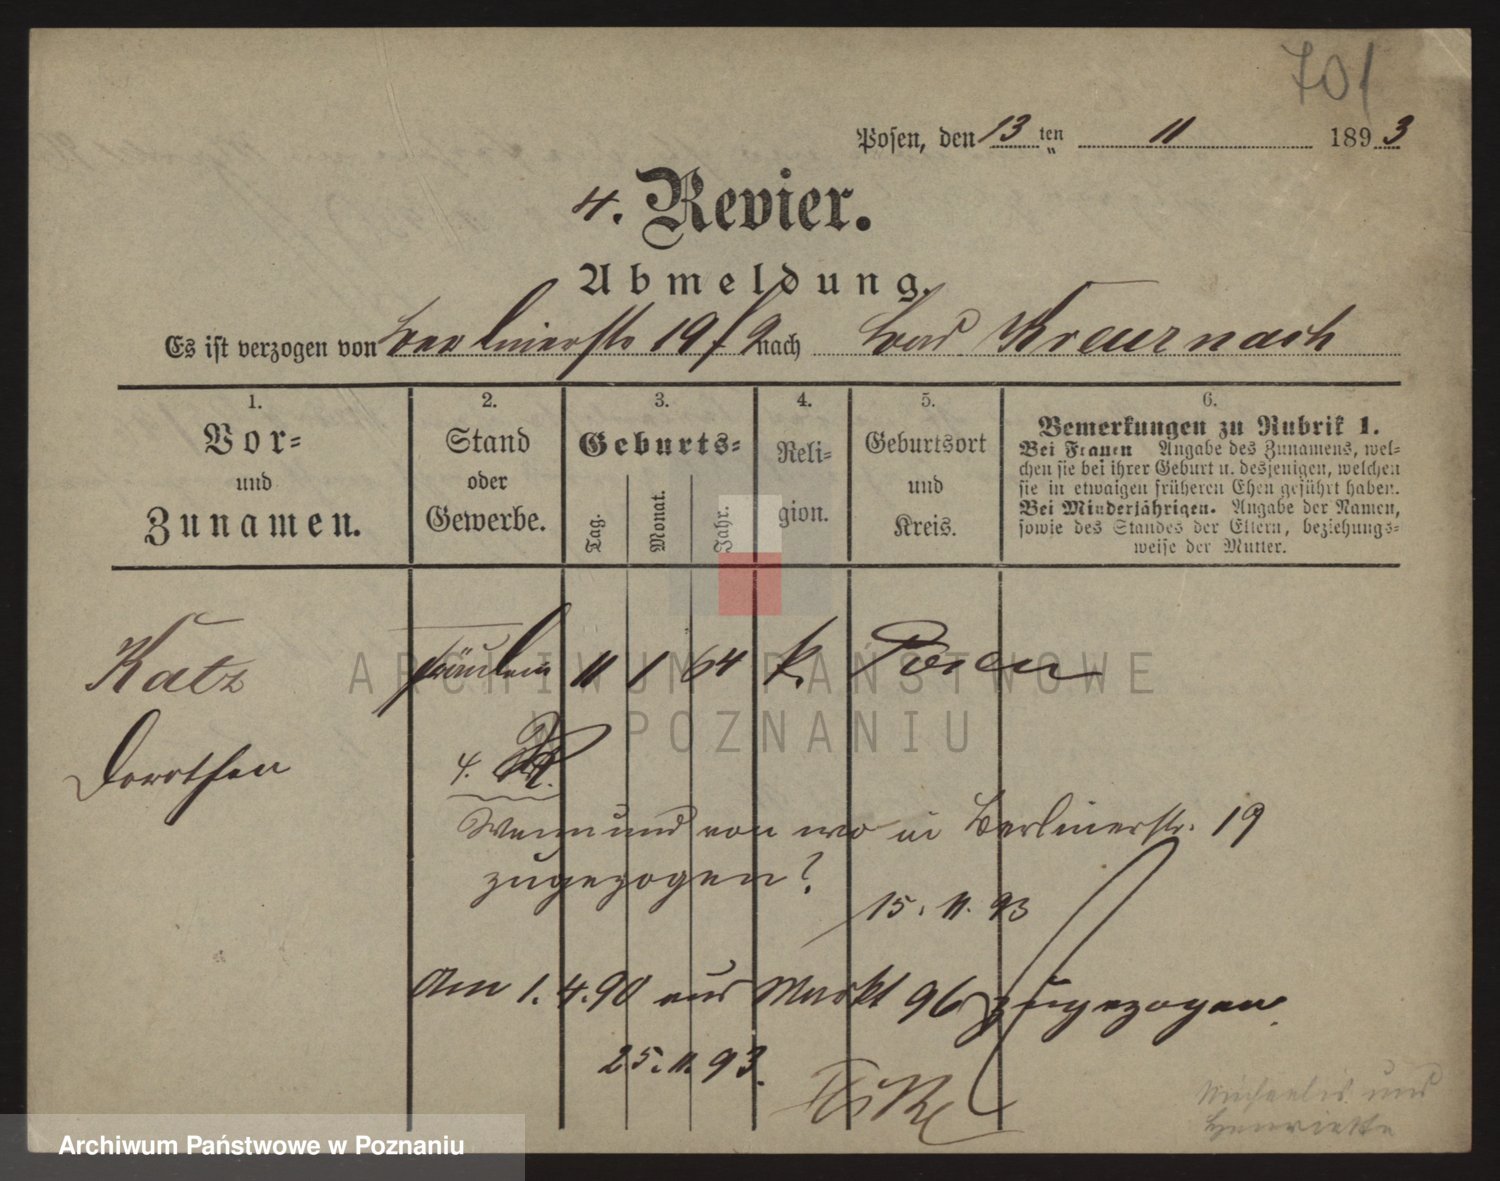 701
Posen, den 13 ten 11 1893
4. Revier.
Abmeldung.
Es ist verzogen von Berlinerstr 19 nach Bad Kreuznach
1.
Vor-
und
Zunamen.
2.
Stand
oder
Gewerbe.
3.
Geburts-
Tag.
Monat.
Jahr.
4.
Reli-
gion.
5.
Geburtsort
und
Kreis.
6.
Bemerkungen zu Rubrik 1.
Bei Frauen Angabe des Zunamens, wel-
chen sie bei ihrer Geburt u. desjenigen, welchen
sie in etwaigen früheren Ehen geführt haben.
Bei Minderjährigen. Angabe der Namen,
sowie des Standes der Eltern, beziehungs-
weise der Mutter.
Katz Fräulein 11 1 64 k. Posen
ARCHIWUM PAŃSTWOWE
W POZNANIU
Dorothea
4. R.
Wann und von wo in Berlinerstr. 19
zugezogen?
15. 11. 93
Am 1. 4. 90 aus Markt 96 zugezogen.
25. 11. 93.
Michaelis und
Henriette
Archiwum Państwowe w Poznaniu